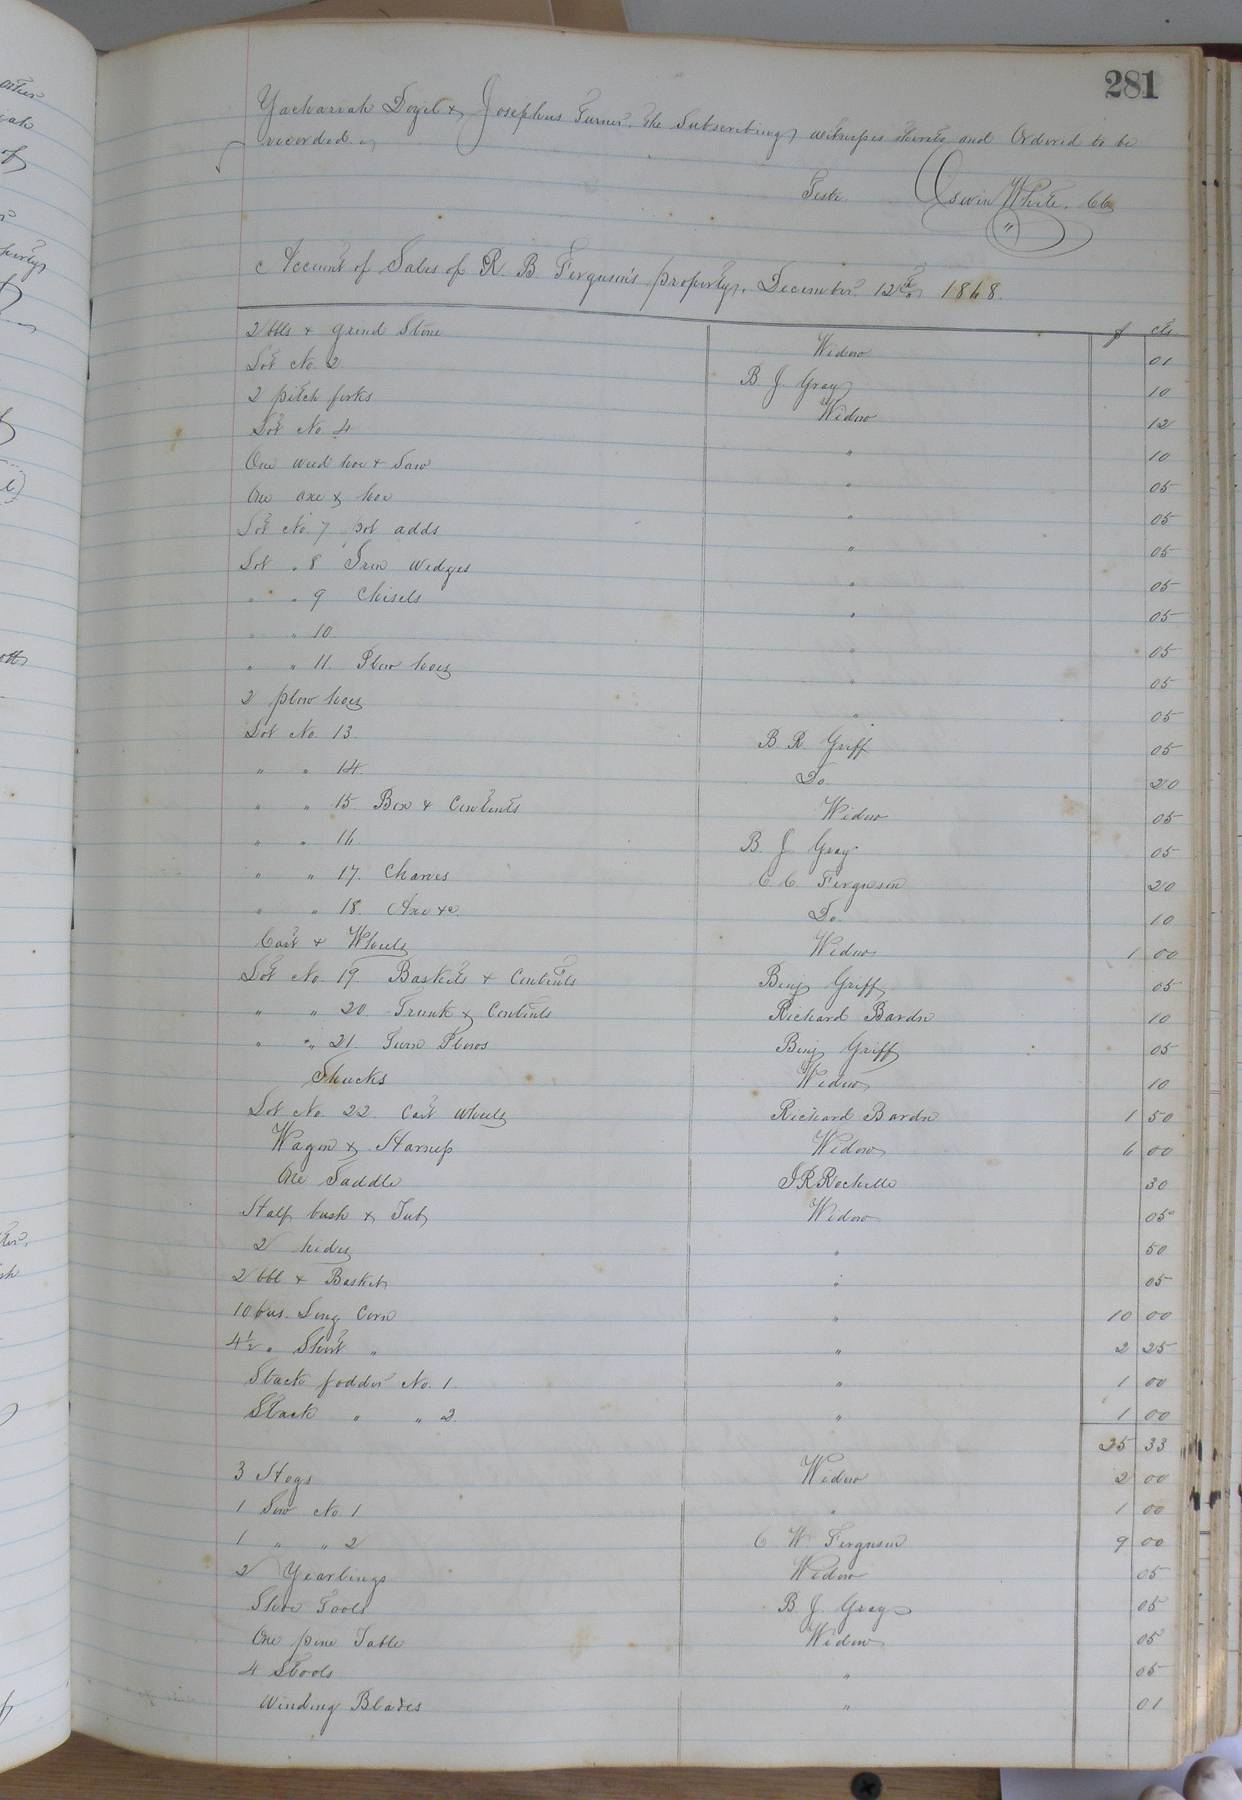 281
Zachariah Doyel & Josephus Turner. The Subscribing witnesses thereto and Ordered to be
recorded.
Teste. Oswin White. CC
Account of Sales of R. B Ferguson's property. December. 12th 1868.
$ cts
2 bbls & grind Stone Widow 01
Lot No. 2 B J. Gray 10
2 pitch forks Widow 12
Lot No 4 " 10
One weed hoe & Saw " 05
One axe & hoe " 05
Lot No. 7 pol adds " 05
Lot " 8 Iron Wedges " 05
" " 9 Chisels " 05
" " 10 " 05
" " 11. Plow hoes " 05
2 plow hoes " 05
Lot No. 13 B R. Griff 05
" " 14 Do. 20
" " 15 Box & Contents Widow 05
" " 16 B. J. Gray 05
" " 17. Chares C. C. Ferguson 20
" " 18. Axe &c. Do. 10
Cart & Wheels Widow 1 00
Lot No. 19 Baskets & Contents Benj Griff 05
" " 20 Trunk & Contents Richard 10
" " 21. Turn Plows Benj Griff 05
Shucks Widow 10
Lot No. 22 Cart Wheels Richard 1 50
Wagon & Harness Widow 6 00
One Saddle J R Rochelle 30
Half bush & Tub Widow 05
2 hides " 50
2 bbl & Basket " 05
10 bus. Long Corn " 10 00
4½ " Short " " 2 25
Stack fodder No. 1. " 1 00
Stack " " 2 " 1 00
25 33
3 Hogs Widow 2 00
1 Sow No. 1 " 1 00
1 " " 2 C W. Ferguson 9 00
2 Yearlings Widow 05
Shoe Tools B. J. Gray 05
One pine Table Widow 05
4 Stools " 05
Winding Blades " 01